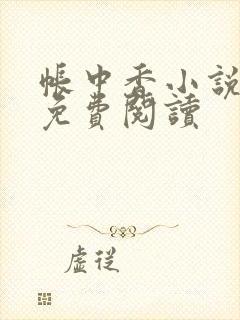 帳中香小說
免費閱讀
虛從